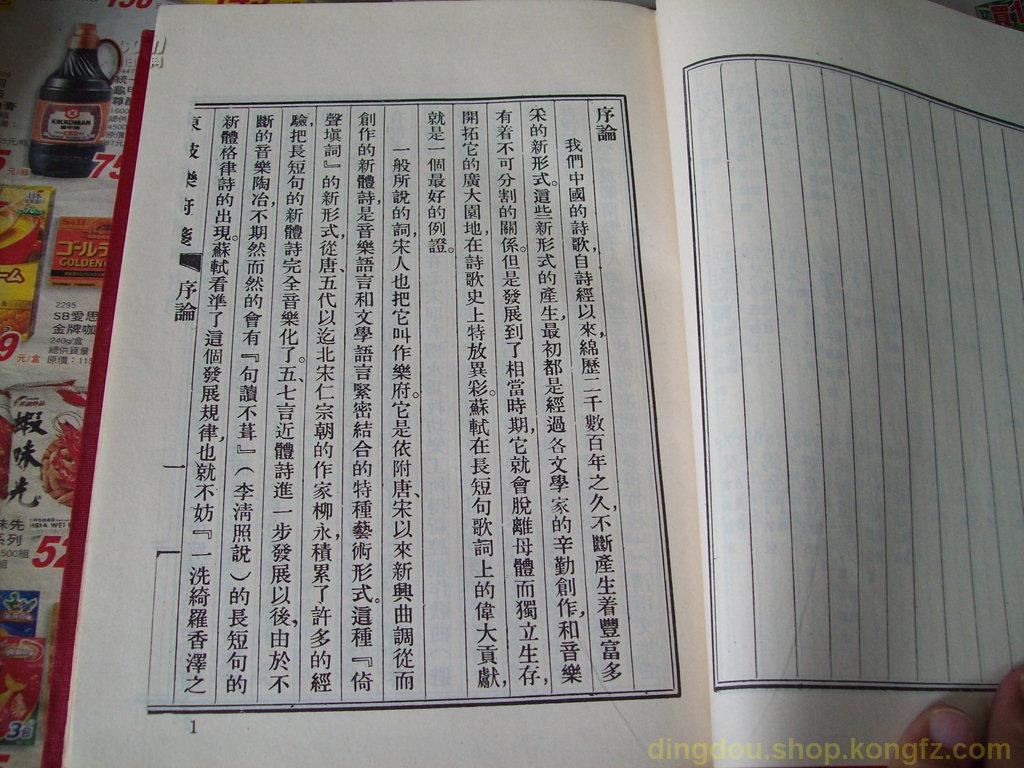 序論
我們中國的詩歌，自詩經以來，綿歷二千數百年之久，不斷產生着豐富多
采的新形式。這些新形式的產生，最初都是經過各文學家的辛勤創作，和音樂
有着不可分割的關係。但是發展到了相當時期，它就會脫離母體而獨立生存，
開拓它的廣大園地，在詩歌史上特放異彩。蘇軾在長短句歌詞上的偉大貢獻，
就是一個最好的例證。
一般所說的詞，宋人也把它叫作樂府。它是依附唐、宋以來新興曲調從而
創作的新體詩，是音樂語言和文學語言緊密結合的特種藝術形式。這種『倚
聲塡詞』的新形式，從唐、五代以迄北宋仁宗朝的作家柳永，積累了許多的經
驗，把長短句的新體詩完全音樂化了。五、七言近體詩進一步發展以後，由於不
斷的音樂陶冶，不期然而然的會有『句讀不葺』（李淸照說）的長短句的
新體格律詩的出現。蘇軾看準了這個發展規律，也就不妨『一洗綺羅香澤之
東坡樂府箋 序論
一
1
KIKKOMAN
ゴールデ
GOLDEN
2295
SB愛思
金牌咖
240g/盒
總供貨量
原價：115
元/盒
蝦味先
味先
系列
52
75
元/瓶
3包
dingdou.shop.kongfz.com